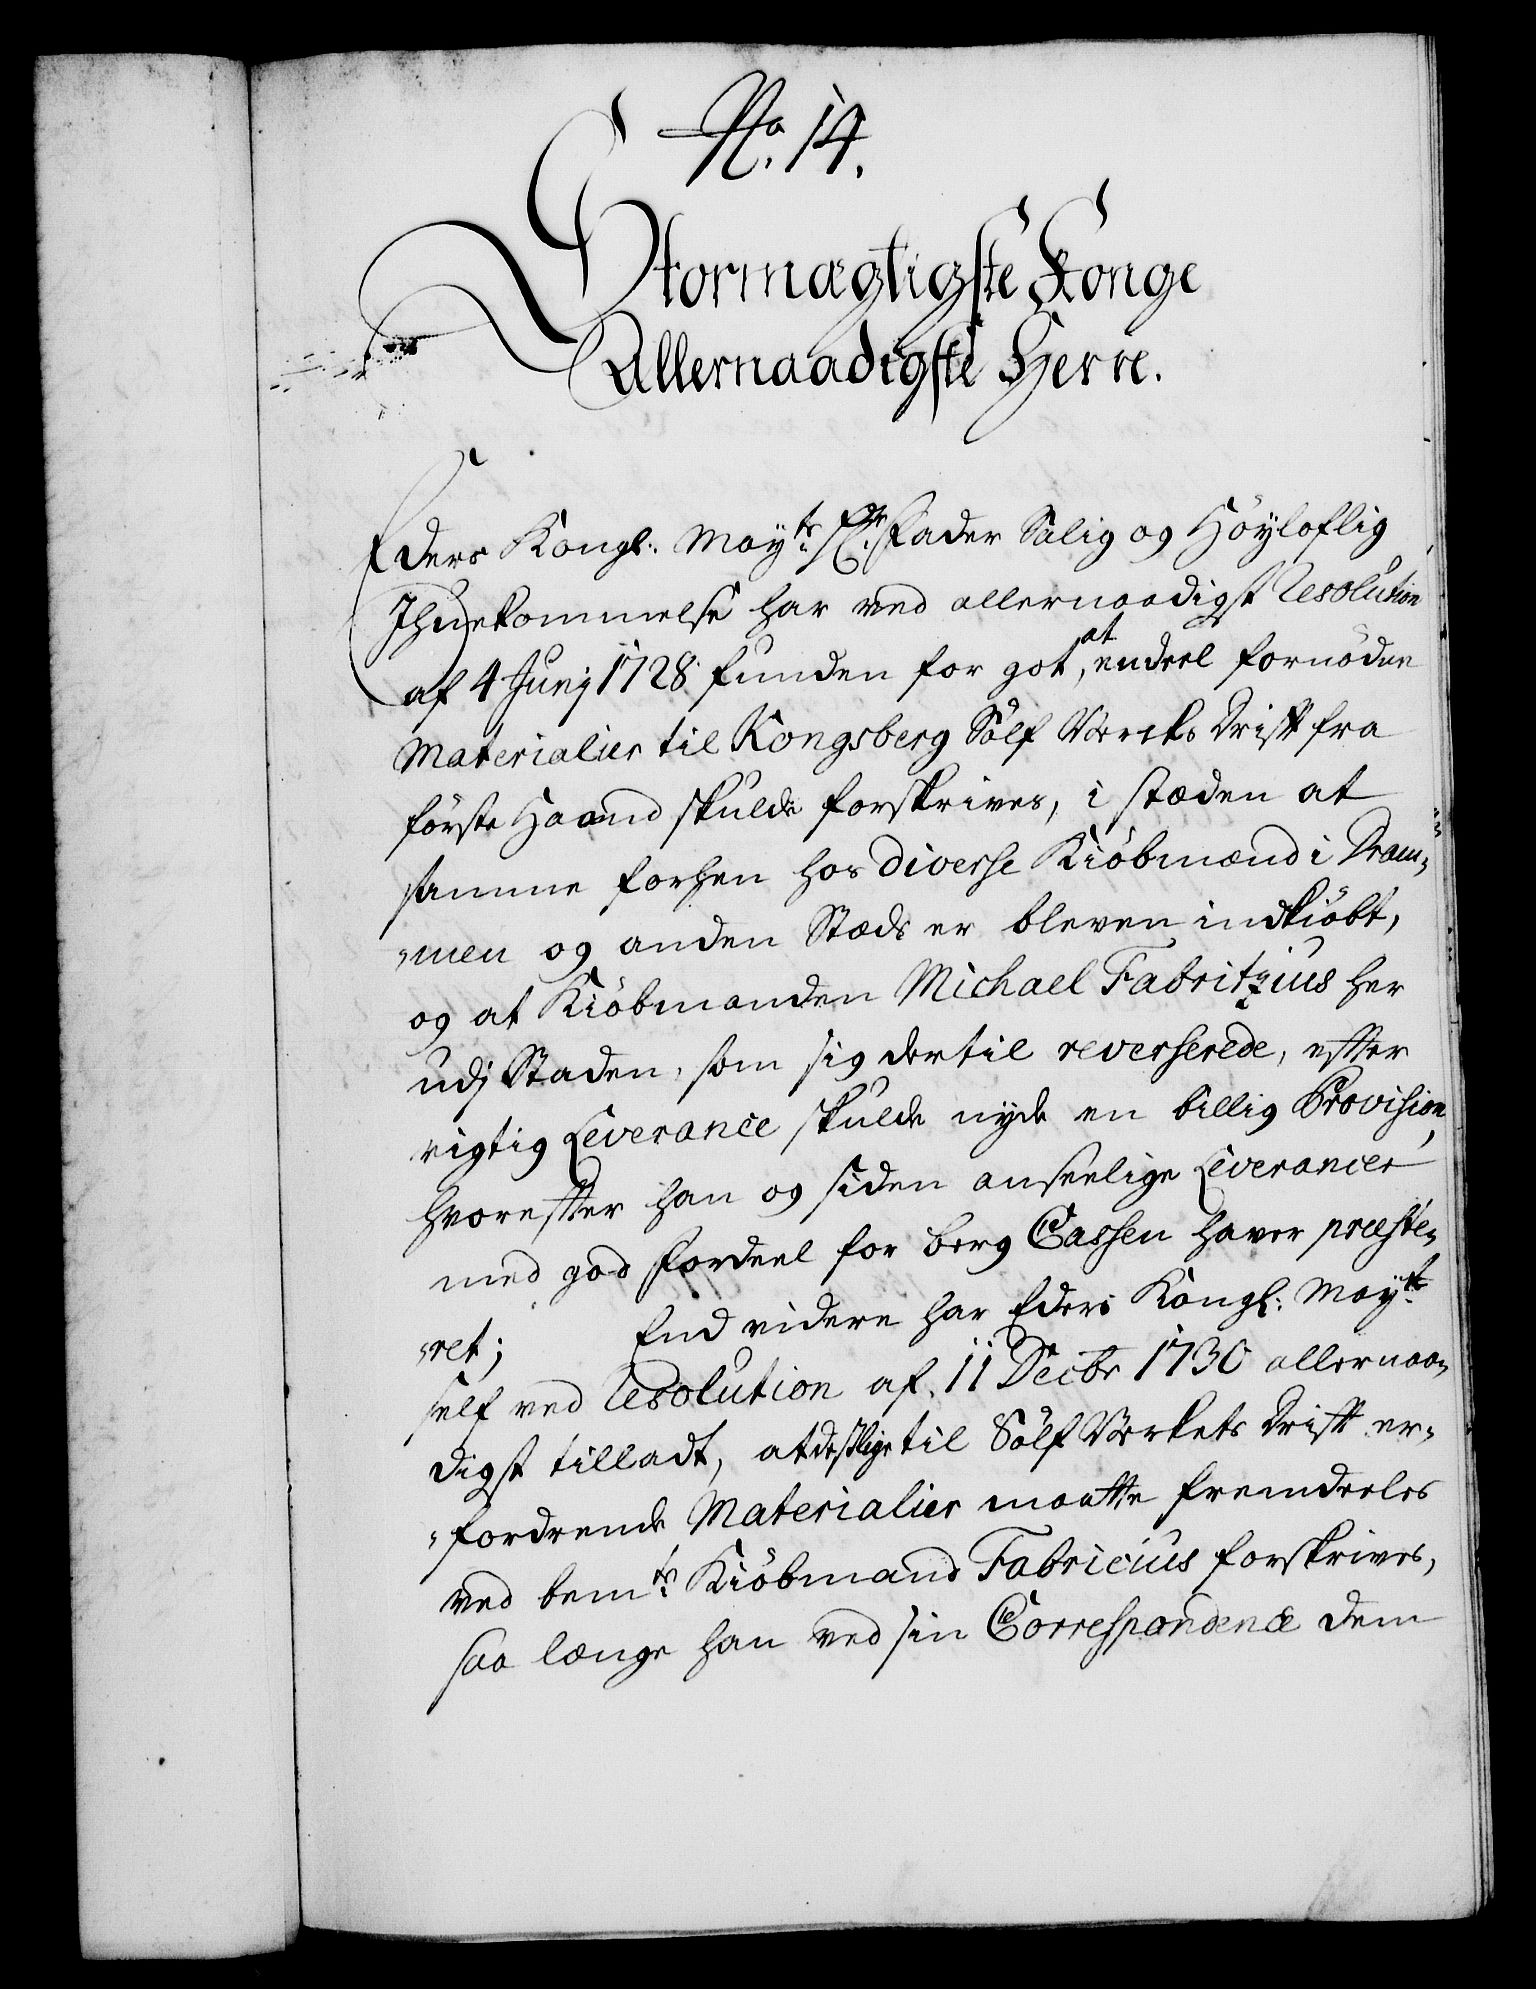 No. 14.
Stormægtigste Konge
Allernaadigste Herre.
Eders Kongl: Mayts Hr Fader Salig og Höyloflig
Ihuekommelse har ved allernaadigst Resolution
af 4 Junj 1728 funden for got, at endeel fornödne
Materialier til Kongsberg Sölf Værcks Drift fra
förste Haand skulde forskrives, i stæden at
samme forhen hos diverse Kiöbmænd i Dram-
men og anden Stæds er bleven indkiöbt,
og at Kiöbmanden Michael Fabritzius her
udj Staden, som sig dertil reverserede, efter
rigtig Leverance skulde nyde en billig Provision,
hvorefter han og siden anseelige Leverancer
med god fordeel for berg Cassen haver præste-
ret; End videre har Eders Kongl: Mayt
self ved Resolution af 11 Decbr 1730 allernaa-
digst tilladt, at deslige til Sölf Værkets Drift er-
fordrende Materialier maatte fremdeeles
ved bemte Kiöbmand Fabricius forskrives,
saa længe han ved sin Correspondence dem